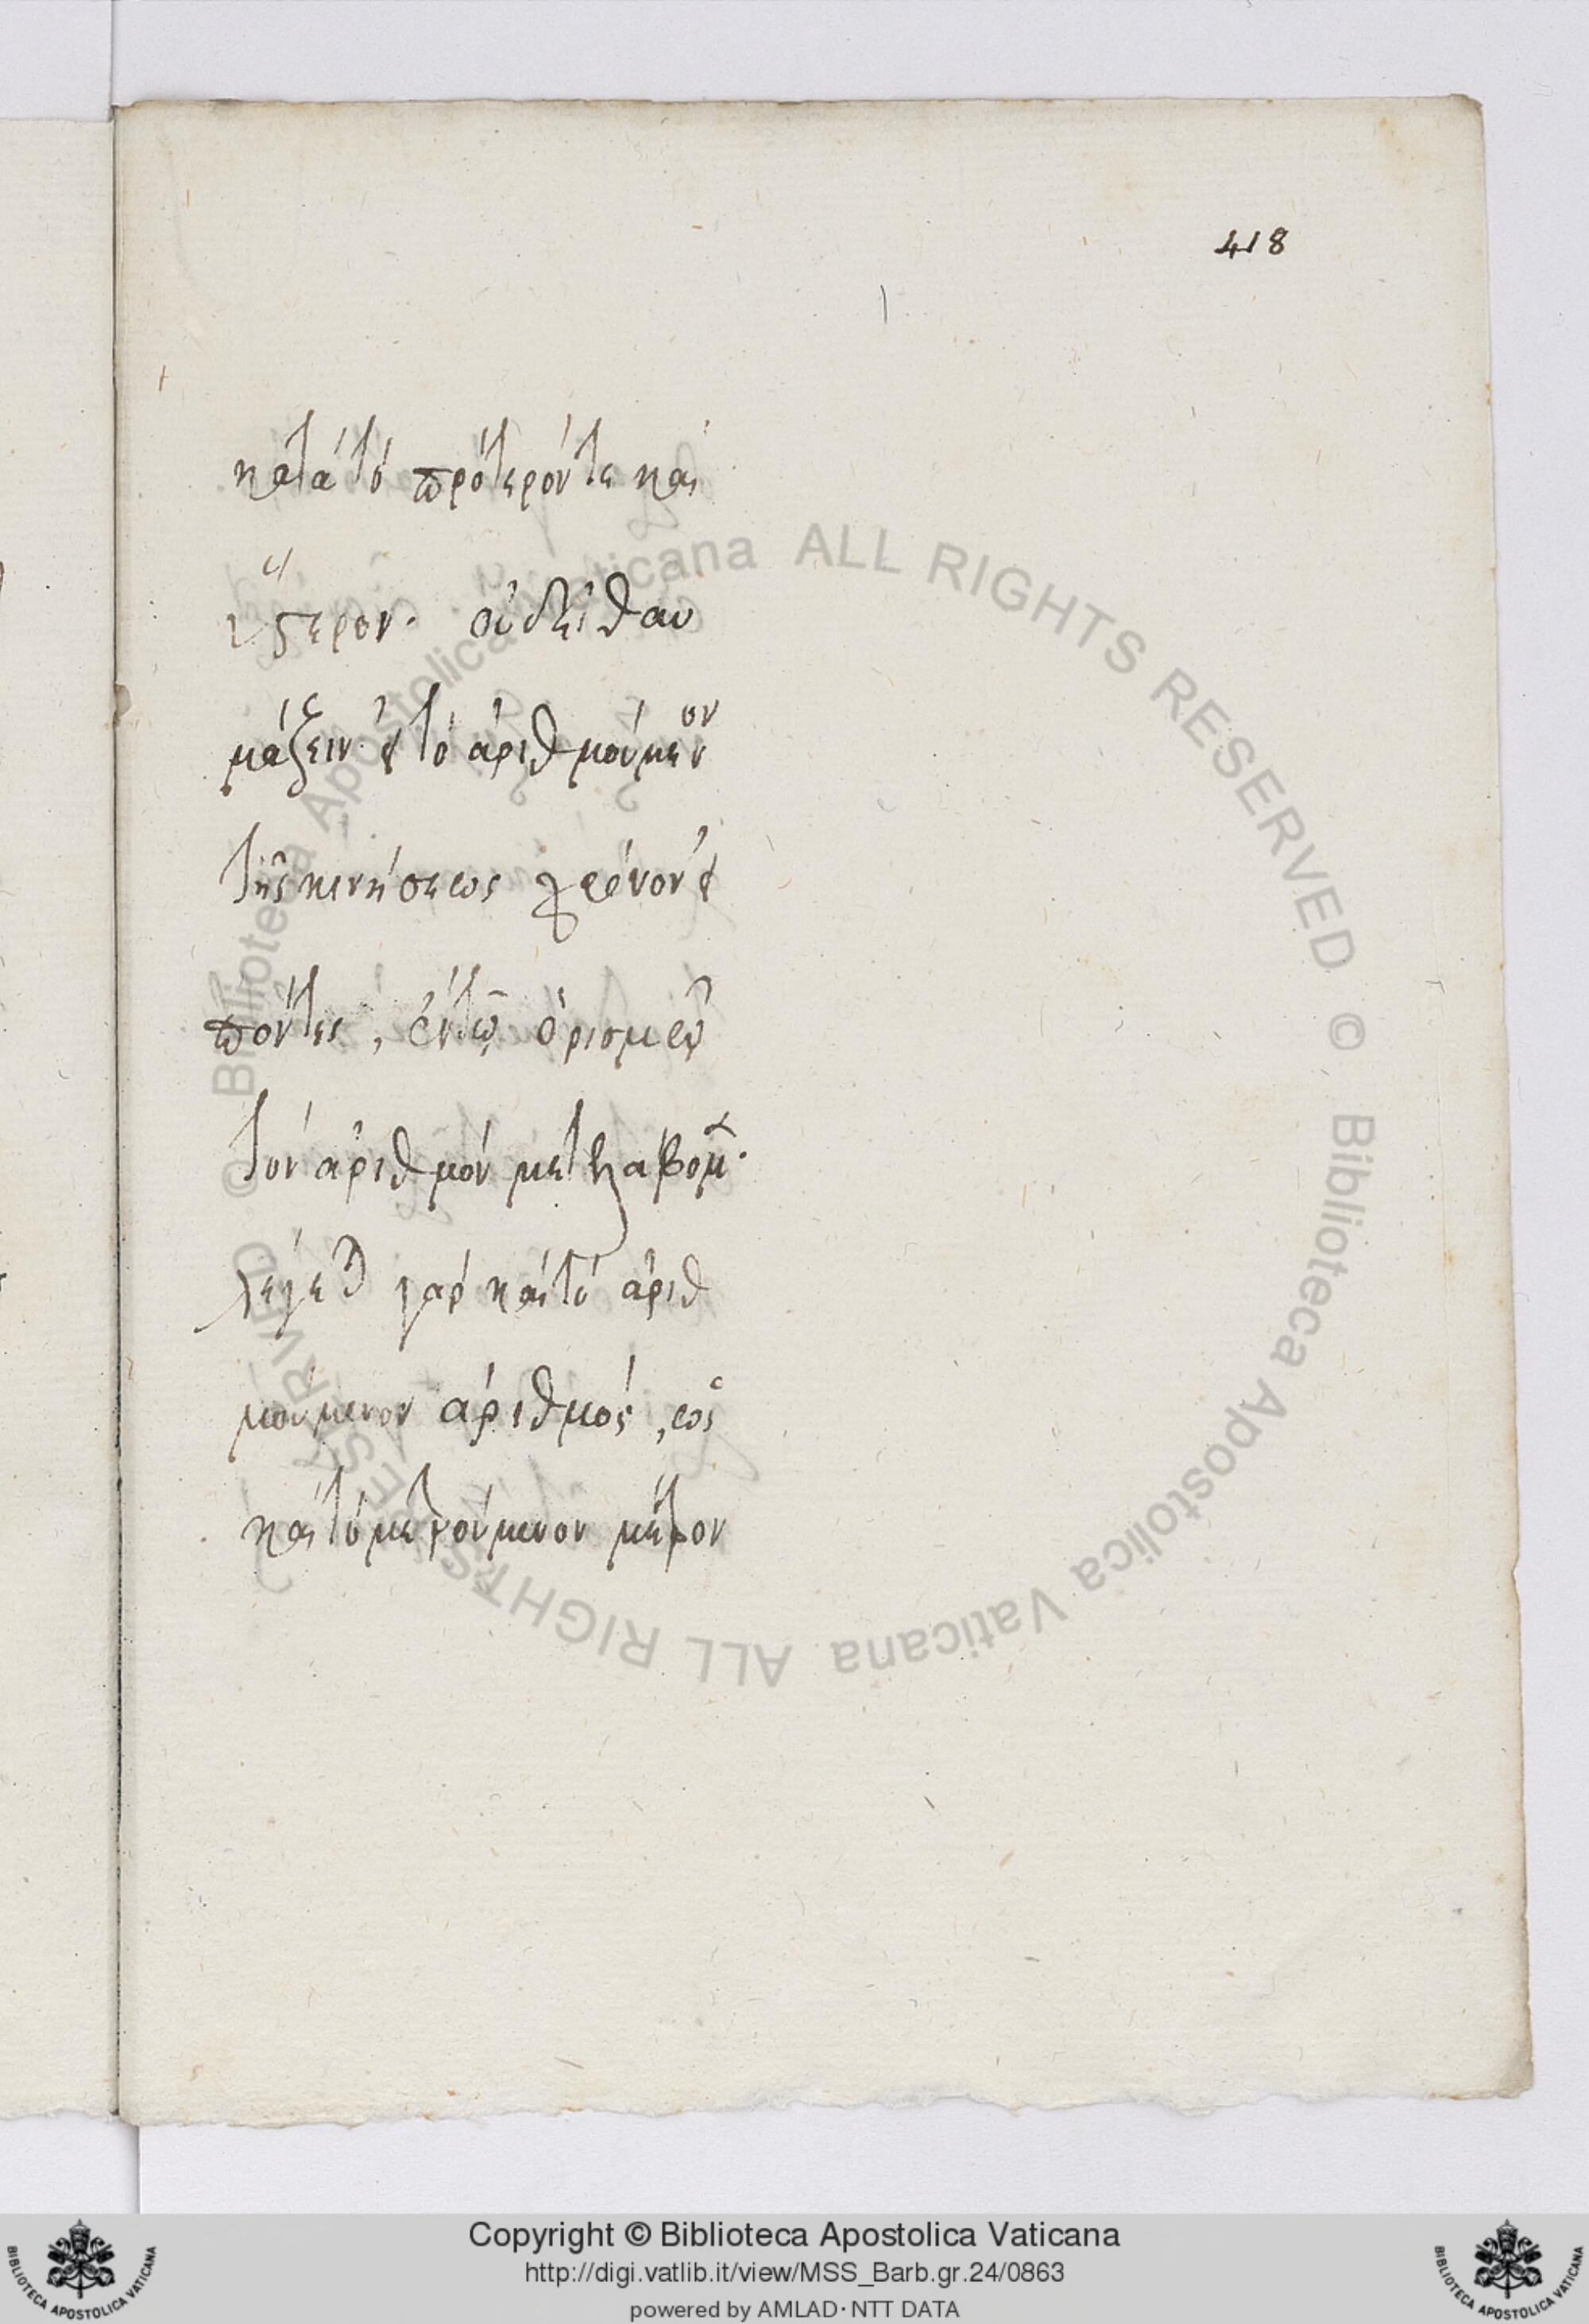 418
κατὰ τὸ πρότερόν τε καὶ
ὕστερον. οὐ δεῖ θαυ
μάζειν εἰ τὸ ἀριθμούμενον
τῆς κινήσεως χρόνον εἰ
πόντες, ἐν τῷ ὁρισμῷ
τὸν ἀριθμὸν μετελάβομεν.
λέγεται γὰρ καὶ τὸ ἀριθ
μούμενον ἀριθμός, ὡς
καὶ τὸ μετρούμενον μέτρον
Biblioteca Apostolica Vaticana ALL RIGHTS RESERVED © Biblioteca Apostolica Vaticana ALL RIGHTS RESERVED ©
Copyright © Biblioteca Apostolica Vaticana
http://digi.vatlib.it/view/MSS_Barb.gr.24/0863
powered by AMLAD·NTT DATA
BIBLIOTECA APOSTOLICA VATICANA
BIBLIOTECA APOSTOLICA VATICANA